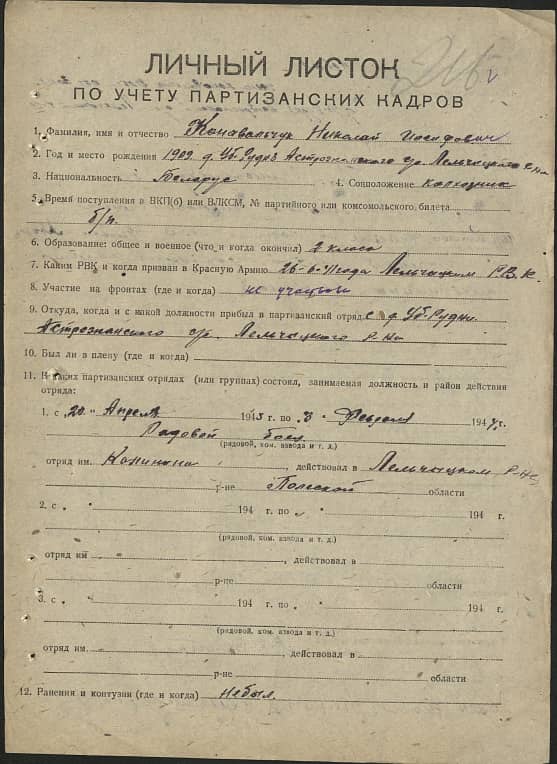 ЛИЧНЫЙ ЛИСТОК
ПО УЧЕТУ ПАРТИЗАНСКИХ КАДРОВ
1. Фамилия, имя и отчество Конавальчук Николай Иосифович
2. Год и место рождения 1909 д. Уб. Рудня с/с. Лельчицкого р-на
3. Национальность Беларус 4. Соцположение колхозник
5. Время поступления в ВКП(б) или ВЛКСМ, № партийного или комсомольского билета
б/п.
6. Образование: общее и военное (что и когда окончил) 2 класса
7. Каким РВК и когда призван в Красную Армию 26-6-41 года Лельчицким Р.В.К.
8. Участие на фронтах (где и когда) не
9. Откуда, когда и с какой должности прибыл в партизанский отряд с д. Уб-Рудни
Лельчицкого р-на
10. Был ли в плену (где и когда)
11. В каких партизанских отрядах (или группах) состоял, занимаемая должность и район действия
отряда:
1. с „20" Апреля 1943 г. по „3" Февраля 1944 г.
Радовой боец
(рядовой, ком. взвода и т. д.)
отряд им. Калинина, действовал в Лельчицком р-не
р-не Полеской области
2. с „ " 194 г. по „ " 194 г.
(рядовой, ком. взвода и т. д.)
отряд им , действовал в
р-не области
3. с „ " 194 г. по „ " 194 г.
(рядовой, ком. взвода и т. д.)
отряд им. , действовал в
р-не области
12. Ранения и контузии (где и когда) небыл